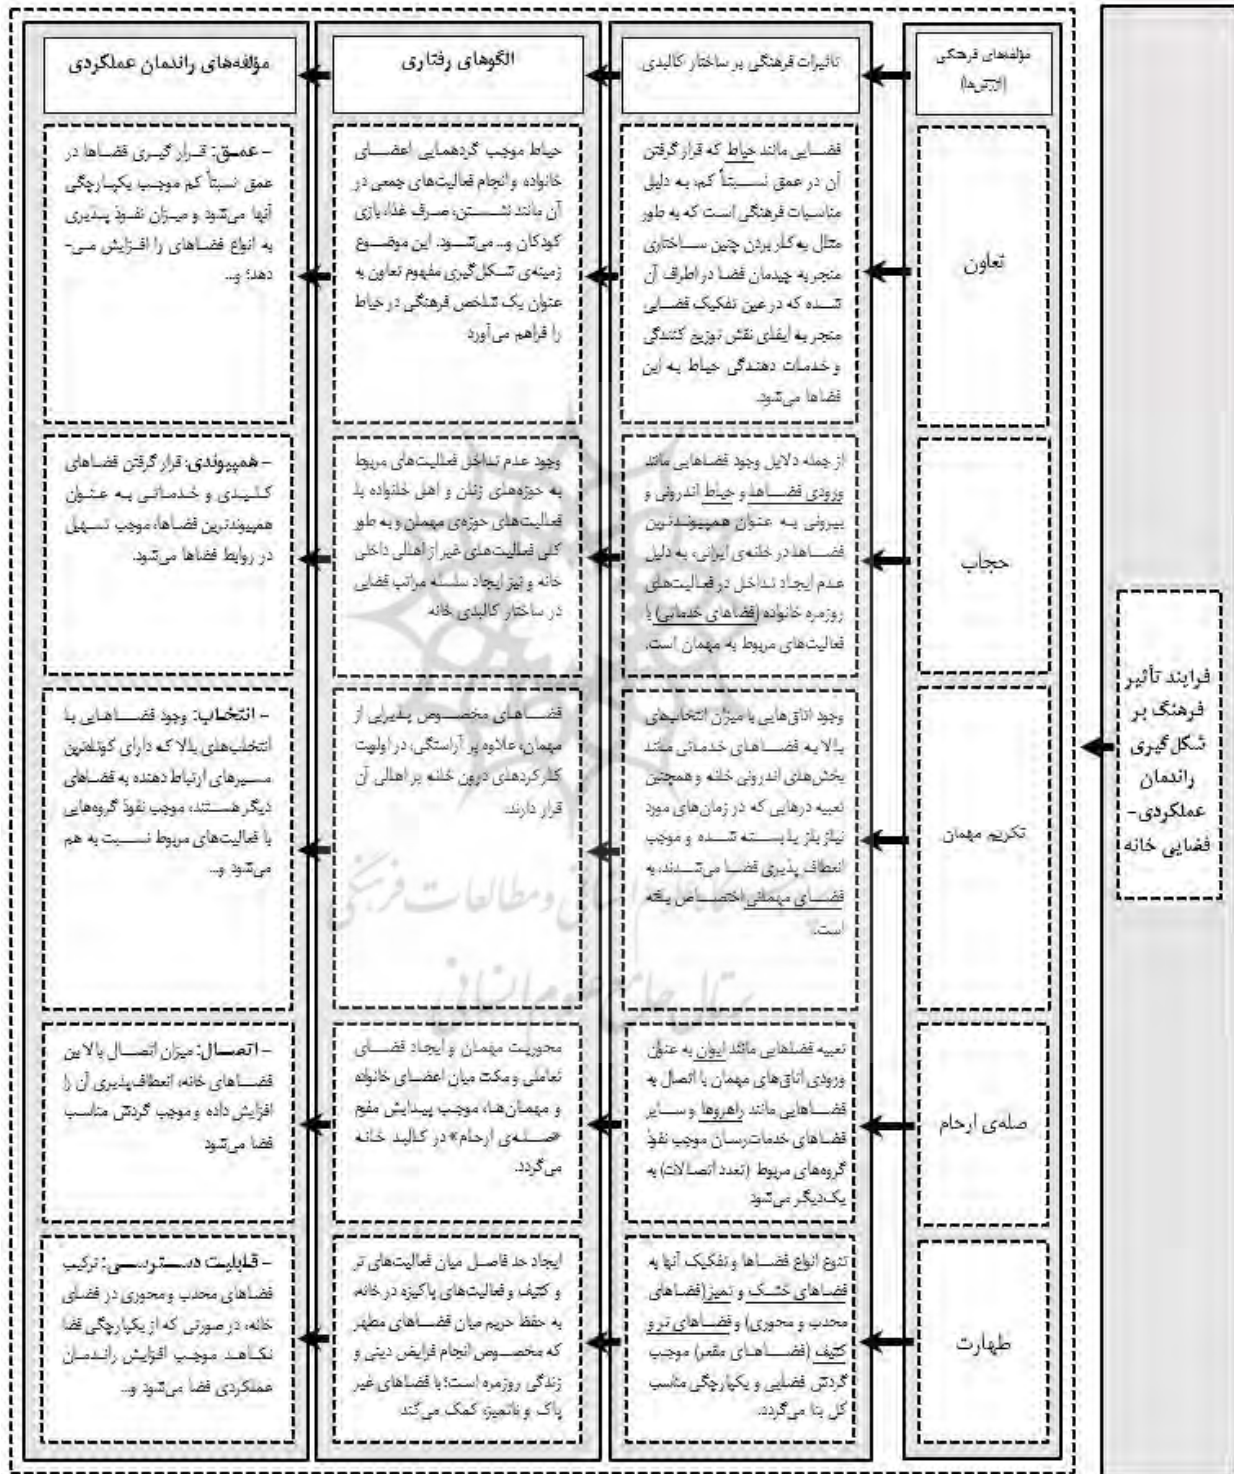 فرایند تأثیر
فرهنگ بر
شکل‌گیری
راندمان
عملکردی-
فضایی خانه
مؤلفه‌های فرهنگی
(ارزش‌ها)
تعاون
حجاب
تکریم مهمان
صله‌ی ارحام
طهارت
تاثیرات فرهنگی بر ساختار کالبدی
فضایی مانند حیاط که قرار گرفتن
آن در عمق نسبتاً کم، به دلیل
مناسبات فرهنگی است که به طور
مثال به‌کار بردن چنین ساختاری
منجر به چیدمان فضا در اطراف آن
شده که در عین تفکیک فضایی
منجر به ایفای نقش توزیع کنندگی
و خدمات دهندگی حیاط به این
فضاها می‌شود.
از جمله دلایل وجود فضاهایی مانند
ورودی فضاها و حیاط اندرونی و
بیرونی به عنوان همپیوندترین
فضاها در خانه‌ی ایرانی، به دلیل
عدم ایجاد تداخل در فعالیت‌های
روزمره خانواده (فضاهای خدماتی) با
فعالیت‌های مربوط به مهمان است.
وجود اتاق‌هایی با میزان انتخاب‌های
بالا به فضاهای خدماتی مانند
بخش‌های اندرونی خانه و همچنین
تعبیه درهایی که در زمان‌های مورد
نیاز باز یا بسته شده و موجب
انعطاف پذیری فضا می‌شدند، به
فضای مهمانی اختصاص یافته
است.
تعبیه فضاهایی مانند ایوان به عنوان
ورودی اتاق‌های مهمان با اتصال به
فضاهایی مانند راهروها و سایر
فضاهای خدمات‌رسان موجب نفوذ
گروه‌های مربوط (تعدد اتصالات) به
یک‌دیگر می‌شود
تنوع انواع فضاها و تفکیک آنها به
فضاهای خشک و تمیز (فضاهای
محدب و محوری) و فضاهای تر و
کثیف (فضاهای مقعر) موجب
گردش فضایی و یکپارچگی مناسب
کل بنا می‌گردد.
الگوهای رفتاری
حیاط موجب گردهمایی اعضای
خانواده و انجام فعالیت‌های جمعی در
آن مانند نشستن، صرف غذا، بازی
کودکان و... می‌شود. این موضوع
زمینه‌ی شکل‌گیری مفهوم تعاون به
عنوان یک شاخص فرهنگی در حیاط
را فراهم می‌آورد
وجود عدم تداخل فعالیت‌های مربوط
به حوزه‌های زنان و اهل خانواده با
فعالیت‌های حوزه‌ی مهمان و به طور
کلی فعالیت‌های غیر از اهالی داخلی
خانه و نیز ایجاد سلسله مراتب فضایی
در ساختار کالبدی خانه
فضاهای مخصوص پذیرایی از
مهمان، علاوه بر آراستگی، در اولویت
کارکردهای درون خانه بر اهالی آن
قرار دارند.
محوریت مهمان و ایجاد فضای
تعاملی و مکث میان اعضای خانواده
و مهمان‌ها، موجب پیدایش مفهوم
«صله‌ی ارحام» در کالبد خانه
می‌گردد.
ایجاد حد فاصل میان فعالیت‌های تر
و کثیف و فعالیت‌های پاکیزه در خانه،
به حفظ حریم میان فضاهای مطهر
که مخصوص انجام فرایض دینی و
زندگی روزمره است؛ با فضاهای غیر
پاک و ناتمیز، کمک می‌کند
مؤلفه‌های راندمان عملکردی
- عمق: قرار گیری فضاها در
عمق نسبتاً کم موجب یکپارچگی
آنها می‌شود و میزان نفوذ پذیری
به انواع فضاهای را افزایش می-
دهد؛ و...
- همپیوندی: قرار گرفتن فضاهای
کلیدی و خدماتی به عنوان
همپیوندترین فضاها، موجب تسهیل
در روابط فضاها می‌شود.
- انتخاب: وجود فضاهایی با
انتخاب‌های بالا که دارای کوتاهترین
مسیرهای ارتباط دهنده به فضاهای
دیگر هستند، موجب نفوذ گروه‌هایی
با فعالیت‌های مربوط نسبت به هم
می‌شود و...
- اتصال: میزان اتصال بالا بین
فضاهای خانه، انعطاف‌پذیری آن را
افزایش داده و موجب گردش مناسب
فضا می‌شود
- قابلیت دسترسی: ترکیب
فضاهای محدب و محوری در فضای
خانه، در صورتی که از یکپارچگی فضا
نکاهد موجب افزایش راندمان
عملکردی فضا می‌شود و...
و مطالعات فرهنگی
پرتال جامع علوم انسانی